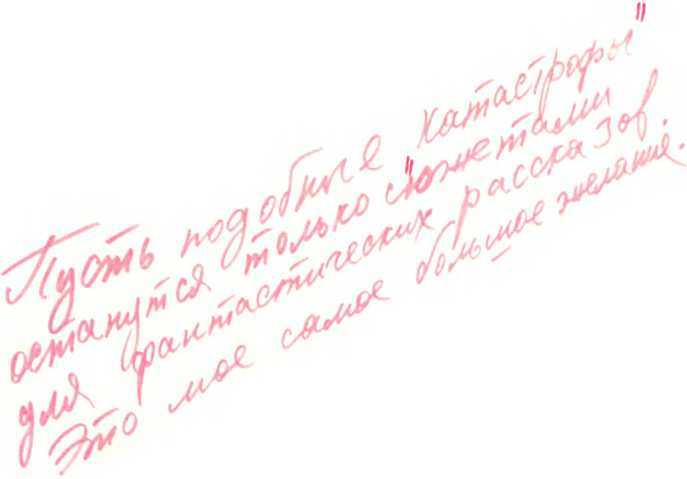 Пусть подобные катастрофы"
останутся только "сюжетами
для фантастических рассказов.
Это мое самое большое желание.